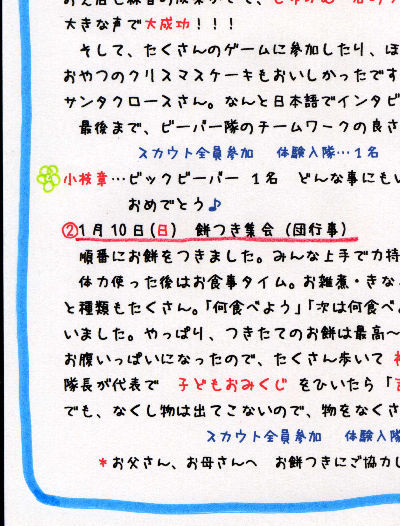 大きな声で大成功！！！
そして、たくさんのゲームに参加したり、ほ
おやつのクリスマスケーキもおいしかったです
サンタクロースさん。なんと日本語でインタビ
最後まで、ビーバー隊のチームワークの良さ
スカウト全員参加 体験入隊…１名
小枝章…ビックビーバー １名 どんな事にもい
おめでとう♪
②１月１０日(日) 餅つき集会（団行事）
順番にお餅をつきました。みんな上手で力持
体力使った後はお食事タイム。お雑煮・きな
と種類もたくさん。「何食べよう」「次は何食べよ
いました。やっぱり、つきたてのお餅は最高～
お腹いっぱいになったので、たくさん歩いて
隊長が代表で 子どもおみくじ をひいたら「
でも、なくし物は出てこないので、物をなくさ
スカウト全員参加 体験入隊
*お父さん、お母さんへ お餅つきにご協力し